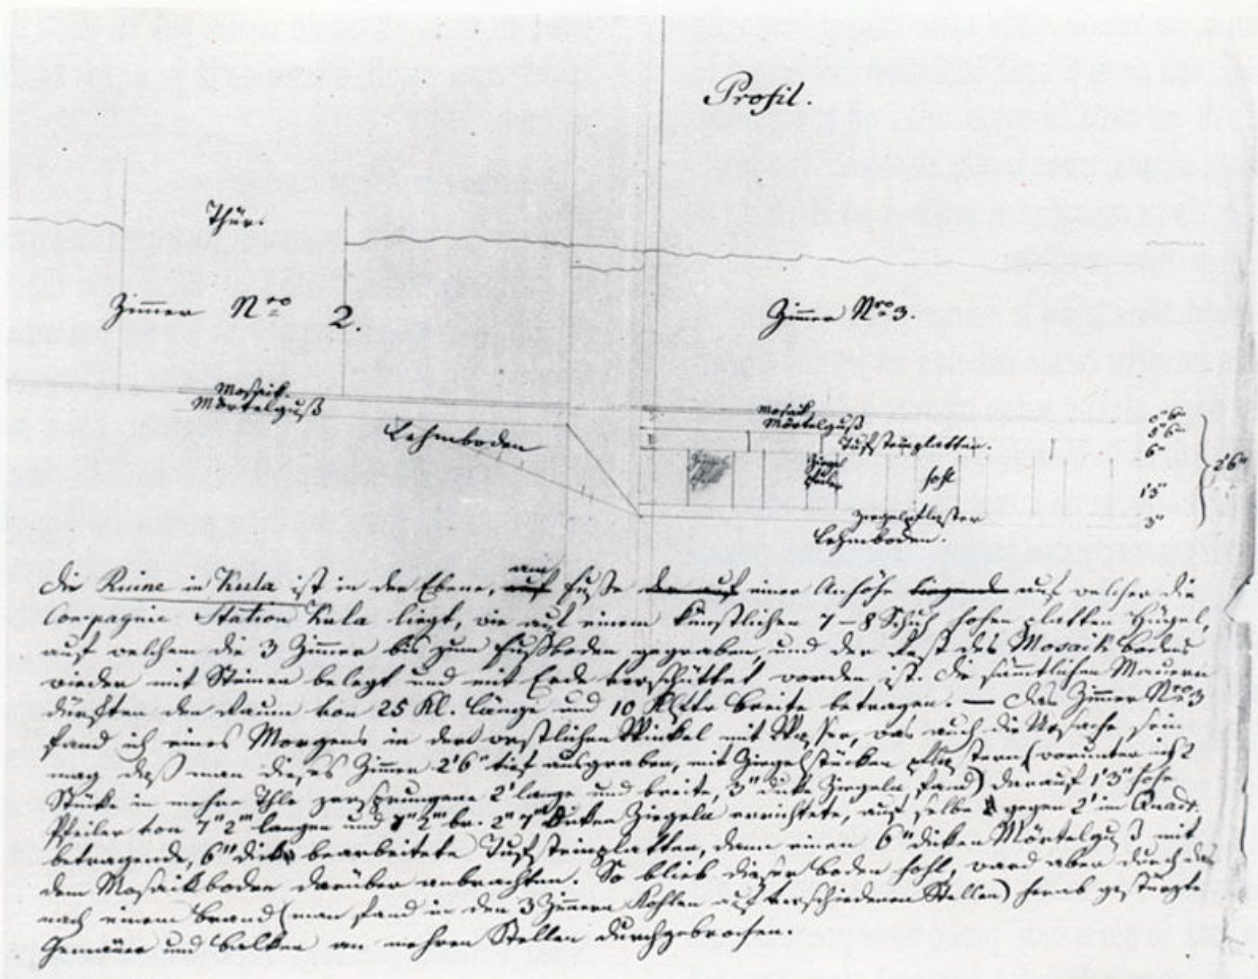 Profil.
Thür.
Zimmer Nro 2.
Zimmer Nro 3.
Mosaik.
Mörtelguß
Lehmboden
Mosaik
Mörtelguß
Tufsteinplatten.
hohl
Ziegelpflaster
Lehmboden.
6"
1'3"
3"
2'6"
Die Ruine in Kula ist in der Ebene, am Fuße einer Anhöhe auf welcher die
Compagnie Station Kula liegt, wie auf einem künstlichen 7–8 Schuh hohen platten Hügel,
auf welchem die 3 Zimmer bis zum Fußboden gegraben, und der Rest des Mosaik bodens
wieder mit Steinen belegt und mit Erde verschüttet worden ist. Die sämtlichen Mauern
dürften den Raum von 25 Kl. Länge und 10 Klftr Breite betragen. — Das Zimmer Nro 3
fand ich eines Morgens in dem westlichen Winkel mit Wasser, was auch die Ursache sein
mag daß man dieses Zimmer 2'6" tief ausgraben, mit Ziegelstücken pflastern (worunter ich 2
Stücke in mehre Thle zersprungene 2' lange und breite, 3" dicke Ziegeln fand) darauf 1'3" hohe
Pfeiler von 7"2''' langen und 7"2''' br. 2" dicken Ziegeln errichtete, auf selbe gegen 2' im Quadr.
betragende, 6" dick bearbeitete Tufsteinplatten, dann einen 6" dicken Mörtelguß mit
dem Mosaikboden darüber anbrachten. So blieb dieser Boden hohl, ward aber durch das
nach einem Brand (man fand in den 3 Zimmern Kohlen auf verschiedenen Stellen) herab gestürzte
Gemäuer und Balken an mehren Stellen durchgebrochen.